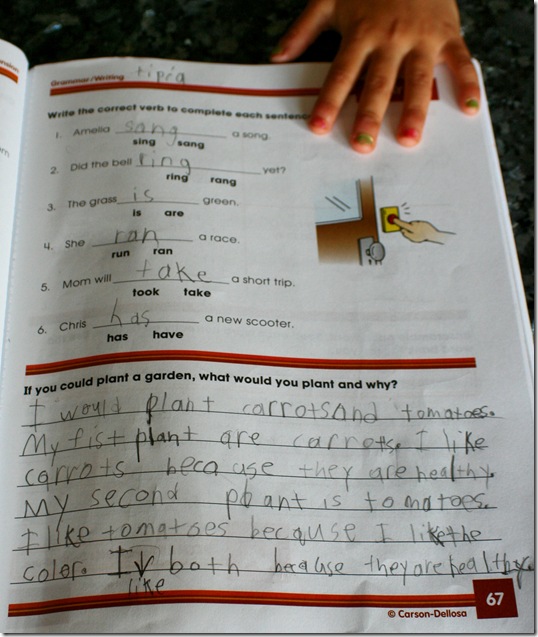 Grammar/Writing
Write the correct verb to complete each sentenc
1. Amelia sang a song.
sing sang
2. Did the bell ring yet?
ring rang
3. The grass is green.
is are
4. She ran a race.
run ran
5. Mom will take a short trip.
took take
6. Chris has a new scooter.
has have
If you could plant a garden, what would you plant and why?
I would plant carrots and tomatoes.
My fist plant are carrots. I like
carrots because they are healthy.
My second plant is tomatoes.
I like tomatoes because I like the
color. I like both because they are healthy.
67
© Carson-Dellosa